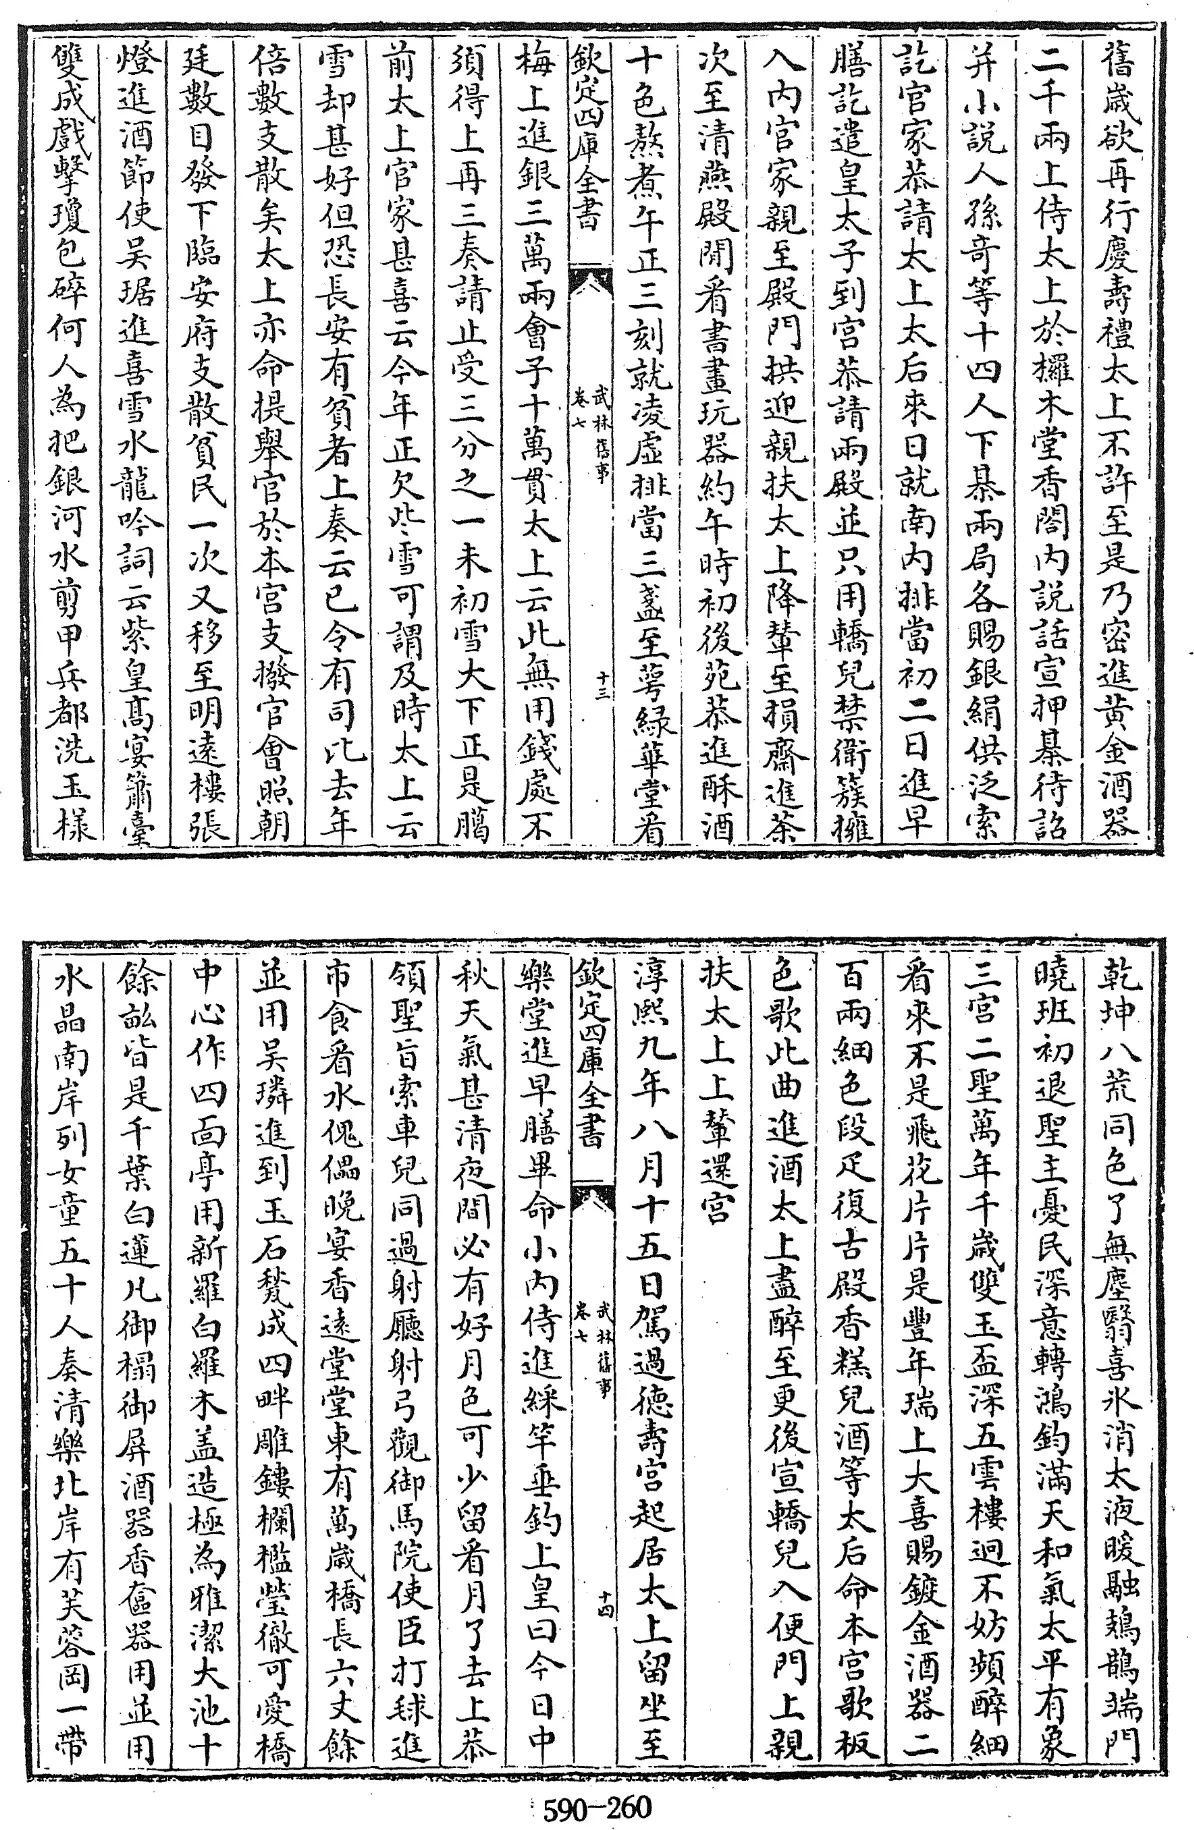 舊歲欲再行慶壽禮太上不許至是乃密進黄金酒器
二千兩上侍太上於欏木堂香閣内說話宣押棊待詔
并小說人孫奇等十四人下棊兩局各賜銀絹供泛索
訖官家恭請太上太后來日就南内排當初二日進早
膳訖遣皇太子到宫恭請兩殿並只用轎兒禁衛簇擁
入内官家親至殿門拱迎親扶太上降輦至損齋進茶
次至清燕殿閒看書畫玩器約午時初後苑恭進酥酒
十色熬煮午正三刻就凌虚排當三盞至萼緑華堂看
欽定四庫全書
武林舊事
卷七
十三
梅上進銀三萬兩會子十萬貫太上云此無用錢處不
須得上再三奏請止受三分之一未初雪大下正是臈
前太上官家甚喜云今年正欠些雪可謂及時太上云
雪却甚好但恐長安有貧者上奏云已令有司比去年
倍數支散矣太上亦命提舉官於本宫支撥官會照朝
廷數目發下臨安府支散貧民一次又移至明逺樓張
燈進酒節使吴琚進喜雪水龍吟詞云紫皇髙宴簫臺
雙成戲擊瓊包碎何人為把銀河水剪甲兵都洗玉様
乾坤八荒同色了無塵翳喜氷消太液暖融鳷鵲端門
曉班初退聖主憂民深意轉鴻鈞滿天和氣太平有象
三宫二聖萬年千歲雙玉盃深五雲樓迥不妨頻醉細
看來不是飛花片片是豐年瑞上大喜賜鍍金酒器二
百兩細色段疋復古殿香糕兒酒等太后命本宫歌板
色歌此曲進酒太上盡醉至更後宣轎兒入便門上親
扶太上上輦還宫
淳熙九年八月十五日駕過德壽宫起居太上留坐至
欽定四庫全書
武林舊事
卷七
十四
樂堂進早膳畢命小内侍進綵竿垂釣上皇曰今日中
秋天氣甚清夜間必有好月色可少留看月了去上恭
領聖旨索車兒同過射廳射弓觀御馬院使臣打毬進
市食看水傀儡晚宴香逺堂堂東有萬歲橋長六丈餘
並用吴璘進到玉石甃成四畔雕鏤欄檻瑩徹可愛橋
中心作四面亭用新羅白羅木盖造極為雅潔大池十
餘畝皆是千葉白蓮凡御榻御屏酒器香奩器用並用
水晶南岸列女童五十人奏清樂北岸有芙蓉岡一帶
590-260